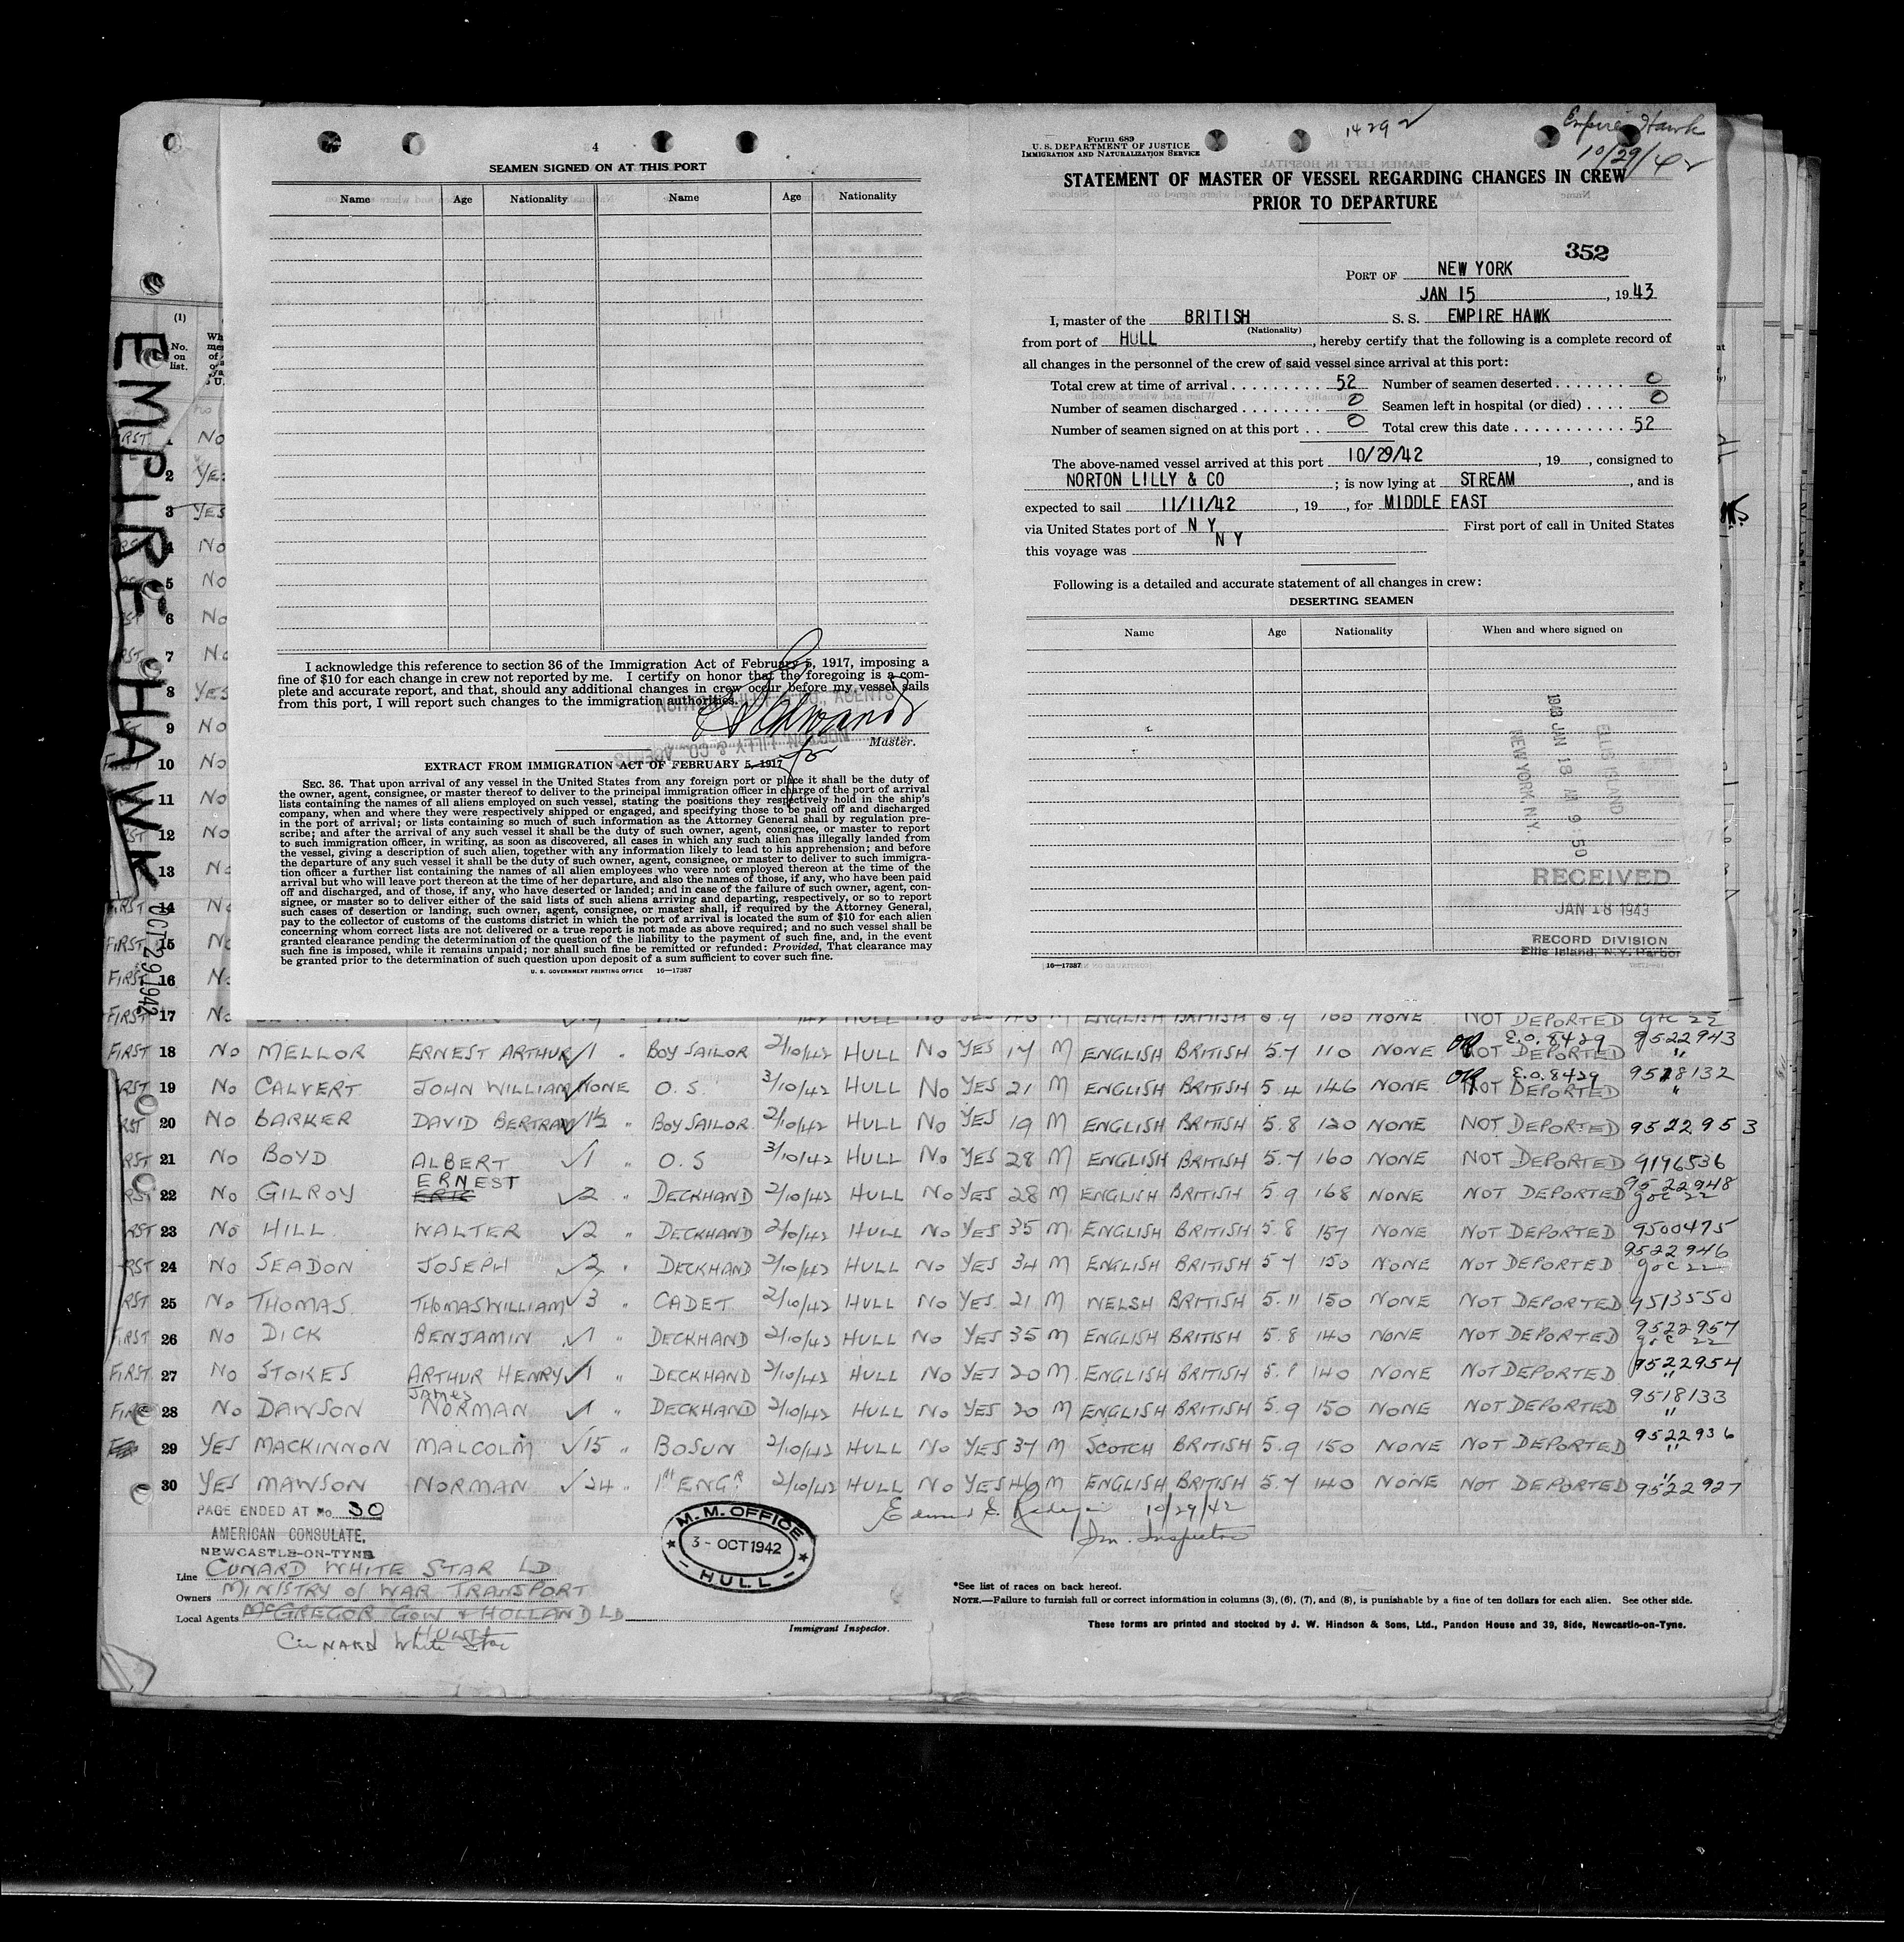 4
SEAMEN SIGNED ON AT THIS PORT
Name Age Nationality Name Age Nationality
I acknowledge this reference to section 36 of the Immigration Act of February 5, 1917, imposing a
fine of $10 for each change in crew not reported by me. I certify on honor that the foregoing is a com-
plete and accurate report, and that, should any additional changes in crew occur before my vessel sails
from this port, I will report such changes to the immigration authorities.
NORTON LILLY & CO., AGENTS
Master.
NORTON LILLY & CO. AGENTS
EXTRACT FROM IMMIGRATION ACT OF FEBRUARY 5, 1917
SEC. 36. That upon arrival of any vessel in the United States from any foreign port or place it shall be the duty of
the owner, agent, consignee, or master thereof to deliver to the principal immigration officer in charge of the port of arrival
lists containing the names of all aliens employed on such vessel, stating the positions they respectively hold in the ship's
company, when and where they were respectively shipped or engaged, and specifying those to be paid off and discharged
in the port of arrival; or lists containing so much of such information as the Attorney General shall by regulation pre-
scribe; and after the arrival of any such vessel it shall be the duty of such owner, agent, consignee, or master to report
to such immigration officer, in writing, as soon as discovered, all cases in which any such alien has illegally landed from
the vessel, giving a description of such alien, together with any information likely to lead to his apprehension; and before
the departure of any such vessel it shall be the duty of such owner, agent, consignee, or master to deliver to such immigra-
tion officer a further list containing the names of all alien employees who were not employed thereon at the time of the
arrival but who will leave port thereon at the time of her departure, and also the names of those, if any, who have been paid
off and discharged, and of those, if any, who have deserted or landed; and in case of the failure of such owner, agent, con-
signee, or master so to deliver either of the said lists of such aliens arriving and departing, respectively, or so to report
such cases of desertion or landing, such owner, agent, consignee, or master shall, if required by the Attorney General,
pay to the collector of customs of the customs district in which the port of arrival is located the sum of $10 for each alien
concerning whom correct lists are not delivered or a true report is not made as above required; and no such vessel shall be
granted clearance pending the determination of the question of the liability to the payment of such fine, and, in the event
such fine is imposed, while it remains unpaid; nor shall such fine be remitted or refunded: Provided, That clearance may
be granted prior to the determination of such question upon deposit of a sum sufficient to cover such fine.
U. S. GOVERNMENT PRINTING OFFICE 16—17387
Form 689
U. S. DEPARTMENT OF JUSTICE
IMMIGRATION AND NATURALIZATION SERVICE
14292
Empire Hawk
10/29/42
STATEMENT OF MASTER OF VESSEL REGARDING CHANGES IN CREW
PRIOR TO DEPARTURE
352
PORT OF NEW YORK
JAN 15, 1943
I, master of the BRITISH S. S. EMPIRE HAWK
(Nationality)
from port of HULL, hereby certify that the following is a complete record of
all changes in the personnel of the crew of said vessel since arrival at this port:
Total crew at time of arrival 52 Number of seamen deserted 0
Number of seamen discharged 0 Seamen left in hospital (or died) 0
Number of seamen signed on at this port 0 Total crew this date 52
The above-named vessel arrived at this port 10/29/42, 19, consigned to
NORTON LILLY & CO; is now lying at STREAM, and is
expected to sail 11/11/42, 19, for MIDDLE EAST
via United States port of N Y First port of call in United States
this voyage was N Y
Following is a detailed and accurate statement of all changes in crew:
DESERTING SEAMEN
Name Age Nationality When and where signed on
ELLIS ISLAND
1943 JAN 18 AM 9:50
NEW YORK, N.Y.
RECEIVED
JAN 18 1943
RECORD DIVISION
Ellis Island, N.Y. Harbor
16—17387
EMPIRE HAWK
OCT 29 1942
(1)
No. on list.
1 No
2 YES
3 YES
4 No
5 No
6 No
7 No
8 YES
9 No
10 No
11 No
12 No
13 No
FIRST 14 No
FIRST 15 No
FIRST 16 No
FIRST 17 No NOT DEPORTED
FIRST 18 No MELLOR ERNEST ARTHUR 1 " BOY SAILOR 2/10/42 HULL No YES 17 M ENGLISH BRITISH 5.7 110 NONE E.O.8429 NOT DEPORTED 9522943
RST 19 No CALVERT JOHN WILLIAM NONE O.S. 3/10/42 HULL No YES 21 M ENGLISH BRITISH 5.4 146 NONE E.O.8429 NOT DEPORTED 9518132
RST 20 No BARKER DAVID BERTRAM 1½ " BOY SAILOR 2/10/42 HULL No YES 19 M ENGLISH BRITISH 5.8 120 NONE NOT DEPORTED 9522953
RST 21 No BOYD ALBERT 1 " O.S 3/10/42 HULL No YES 28 M ENGLISH BRITISH 5.7 160 NONE NOT DEPORTED 9196536
RST 22 No GILROY ERNEST ERIC 2 " DECKHAND 2/10/42 HULL No YES 28 M ENGLISH BRITISH 5.9 168 NONE NOT DEPORTED 9522948
RST 23 No HILL WALTER 2 " DECKHAND 2/10/42 HULL No YES 35 M ENGLISH BRITISH 5.8 157 NONE NOT DEPORTED 9500475
RST 24 No SEADON JOSEPH 2 " DECKHAND 2/10/42 HULL No YES 34 M ENGLISH BRITISH 5.7 150 NONE NOT DEPORTED 9522946
RST 25 No THOMAS THOMAS WILLIAM 3 " CADET 2/10/42 HULL No YES 21 M WELSH BRITISH 5.11 150 NONE NOT DEPORTED 9513550
FIRST 26 No DICK BENJAMIN 1 " DECKHAND 2/10/42 HULL No YES 35 M ENGLISH BRITISH 5.8 140 NONE NOT DEPORTED 9522957
FIRST 27 No STOKES ARTHUR HENRY 1 " DECKHAND 2/10/42 HULL No YES 20 M ENGLISH BRITISH 5.8 140 NONE NOT DEPORTED 9522954
FIRST 28 No DAWSON James NORMAN 1 " DECKHAND 2/10/42 HULL No YES 20 M ENGLISH BRITISH 5.9 150 NONE NOT DEPORTED 9518133
29 YES MACKINNON MALCOLM 15 " BOSUN 2/10/42 HULL No YES 37 M SCOTCH BRITISH 5.9 150 NONE NOT DEPORTED 9522936
30 YES MAWSON NORMAN 24 " 1st ENGR 2/10/42 HULL No YES 46 M ENGLISH BRITISH 5.7 140 NONE NOT DEPORTED 9522927
PAGE ENDED AT No. 30
AMERICAN CONSULATE,
NEWCASTLE-ON-TYNE
M. M. OFFICE
3 - OCT 1942
HULL
10/29/42
Im. Inspector
Line CUNARD WHITE STAR LD
Owners MINISTRY of WAR TRANSPORT
Local Agents McGREGOR GOW & HOLLAND LD
Cunard White Star
Immigrant Inspector.
*See list of races on back hereof.
NOTE.—Failure to furnish full or correct information in columns (3), (6), (7), and (8), is punishable by a fine of ten dollars for each alien. See other side.
These forms are printed and stocked by J. W. Hindson & Sons, Ltd., Pandon House and 39, Side, Newcastle-on-Tyne.